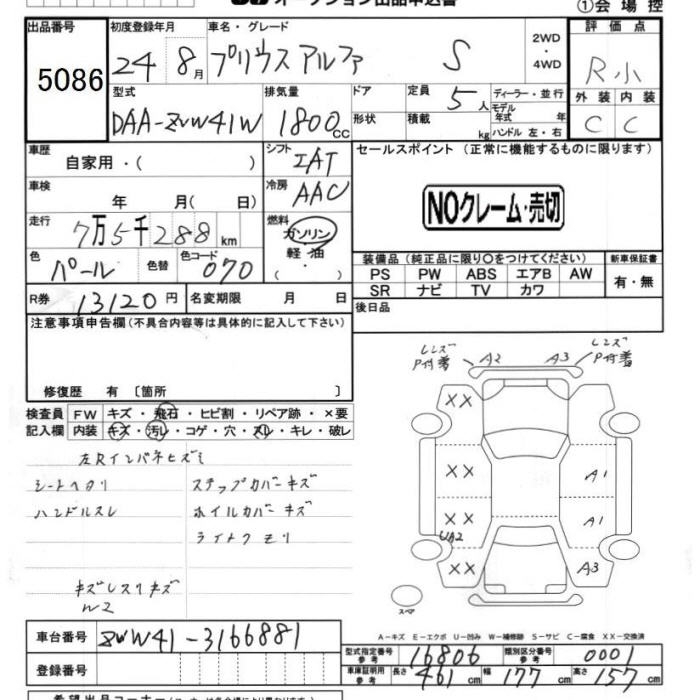 オークション出品申込書
①会場控
出品番号 初度登録年月 車名・グレード 2WD ・ 4WD 評価点
5086 24 8月 プリウスアルファ S R小
型式 排気量 ドア 定員 ディーラー・並行 外装 内装
DAA-ZVW41W 1800cc 5人 モデル年式 年 C C
形状 積載 kg ハンドル 左・右
車歴 自家用・( ) シフト IAT セールスポイント (正常に機能するものに限ります)
車検 年 月( 日) 冷房 AAC
NOクレーム・売切
走行 7万5千288km 燃料 ガソリン 軽油 ・( )
色 パール 色替 色コード 070
装備品 (純正品に限り○をつけてください) 新車保証書
PS PW ABS エアB AW 有・無
SR ナビ TV カワ
R券 13120円 名変期限 月 日 後日品
注意事項申告欄 (不具合内容等は具体的に記入して下さい)
修復歴 有 〔箇所 〕
検査員 FW キズ・飛石・ヒビ割・リペア跡・×要
記入欄 内装 キズ・汚レ・コゲ・穴・スレ・キレ・破レ
左Rインパネヒズミ
シートヘタリ ステップカバーキズ
ハンドルスレ ホイルカバーキズ
ライトクモリ
W2
レンズ P付着 A2 A3 レンズ P付着
XX
XX A1
XX A1
UA2
XX A3
スペア
A-キズ E-エクボ U-凹み W-補修跡 S-サビ C-腐食 XX-交換済
車台番号 ZVW41-3166881
型式指定番号 参考 16806 類別区分番号 参考 0001
登録番号
車庫証明用 参考 長さ 461cm 幅 177cm 高さ 157cm